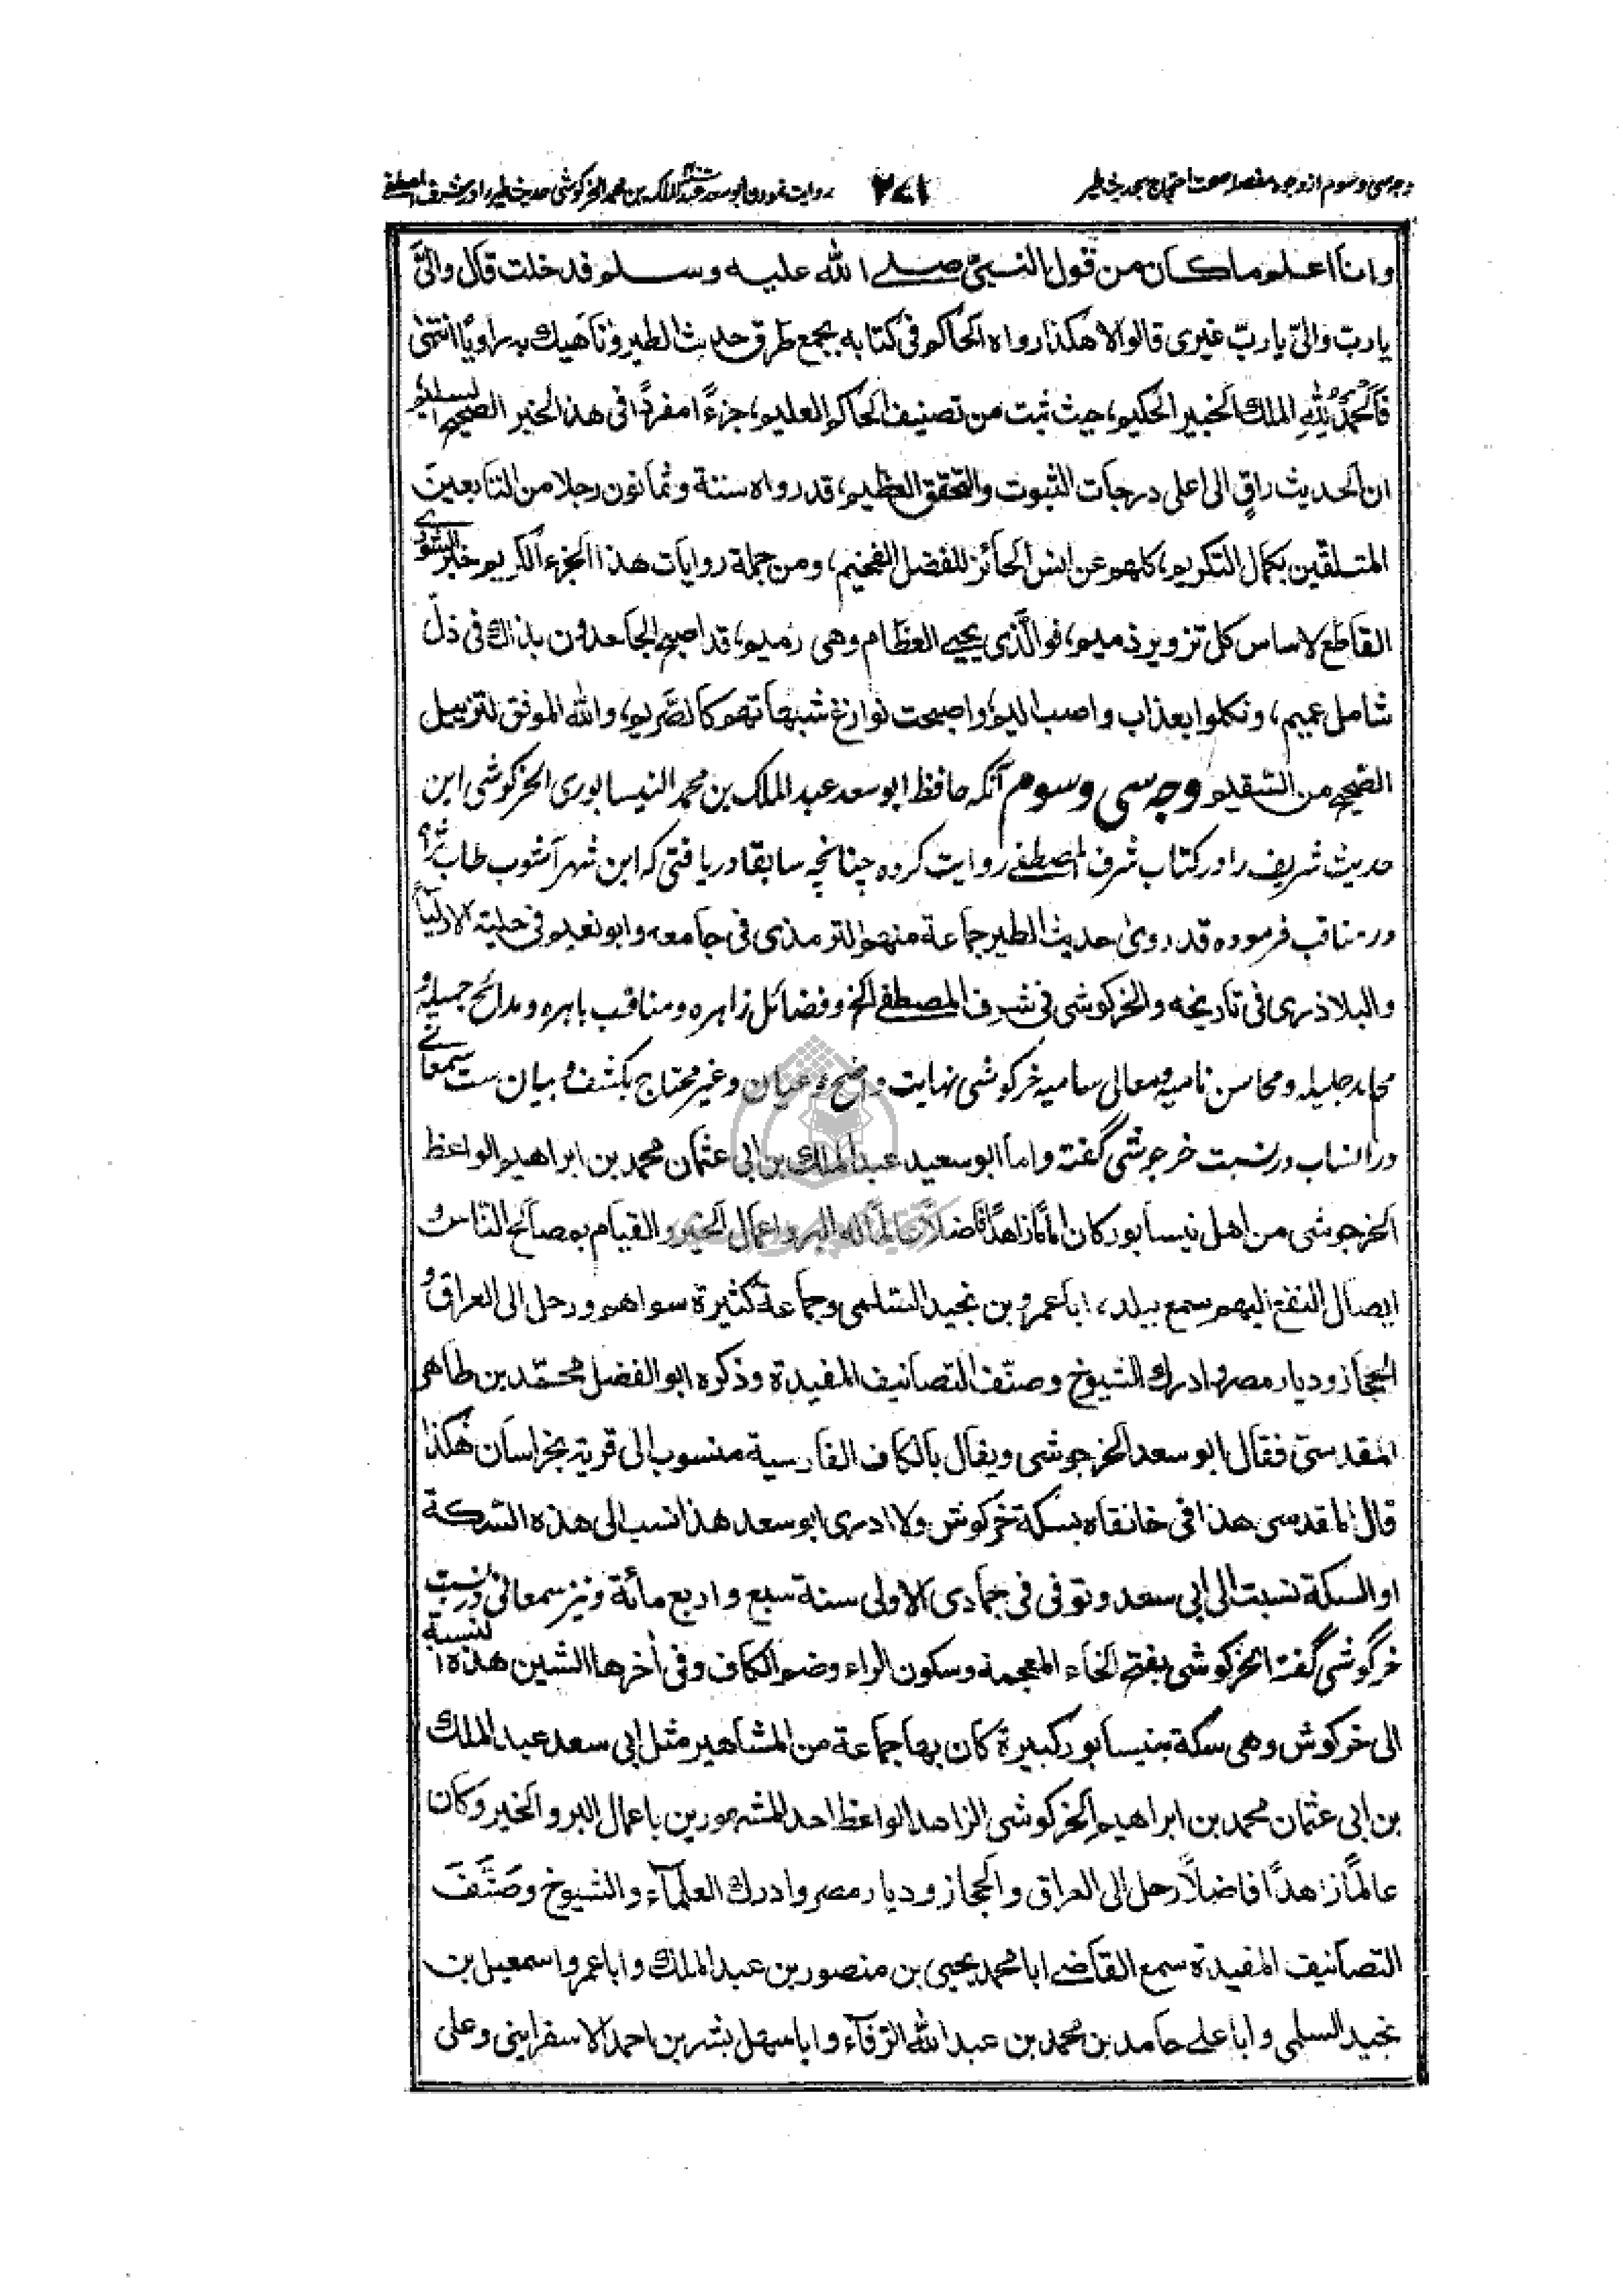 وجه سی و سوم از وجوه مفصله صحت احتجاج بحدیث طیر ۲۷۱ روایت نمودن ابو سعد عبد الملک بن محمد الخرکوشی حدیث طیر را در شرف المصطفی
وانا اعلم ما كان من قول النبیّ صلے الله علیه وسلم فدخلت قال والیّ
یا ربّ والیّ یا ربّ غیری قالوا لا هكذا رواه الحاکم فی کتابه بجمع طرق حدیث الطیر وناهیك به راویًا انتهى
فَالْحَمْدُ لِلّٰهِ الملك الخبیر الحکیم، حیث ثبت من تصنیف الحاکم العلیم، جزءًا مفردًا فی هذا الخبر الصحیح السلیم
ان الحدیث راقٍ الی اعلی درجات الثبوت والتحقق العظیم، قد رواه ستة وثمانون رجلا من التابعین
المتلقّین بکمال التکریم، کلهم عن انس الحائز للفضل الفخیم، ومن جملة روایات هذا الجزء الکریم خبر الشوری
القاطع لاساس کل تزویر ذمیم، فوالّذی یحیی العظام وهی رمیم، قد اصبح الجاحدون بذاك فی ذلّ
شامل عمیم، ونکلوا بعذاب واصب الیم، واصبحت نوازغ شبهاتهم کالصّریم، والله الموفق لتزییل
الصّحیح من السّقیم وجه سی و سوم آنکه حافظ ابو سعد عبد الملک بن محمد النیسابوری الخرکوشی این
حدیث شریف را در کتاب شرف المصطفے روایت کرده چنانچه سابقا دریافتی که ابن شهر آشوب طاب ثراه
در مناقب فرموده قد روی حدیث الطیر جماعة منهم الترمذی فی جامعه وابو نعیم فی حلیة الاولیاء
والبلاذری فی تاریخه والخرکوشی فی شرف المصطفے الخ و فضائل زاهره و مناقب باهره و مدائح جمیله و
محامد جلیله و محاسن نامیه و معالی سامیه خرکوشی نهایت واضح و عیان و غیر محتاج بکشف و بیان ست سمعانے
در انساب در نسبت خرجوشی گفته واما ابو سعید عبد الملك بن ابی عثمان محمد بن ابراهیم الواعظ
الخرجوشی من اهل نیسابور کان امامًا زاهدًا فاضلًا عالمًا له البر واعمال الخیر والقیام بمصالح النّاس و
ایصال النفع الیهم سمع ببلده ابا عمرو بن نجید السّلمی وجماعة کثیرة سواهم ورحل الی العراق و
الحجاز ودیار مصر وادرك الشیوخ وصنّف التصانیف المفیدة وذکره ابو الفضل محمّد بن طاهر
المقدسیّ فقال ابو سعد الخرجوشی ویقال بالکاف الفارسیة منسوب الی قریة بخراسان هکذا
قال المقدسی هذا فی خانقاه بسکة خرکوش ولا ادری ابو سعد هذا نسب الی هذه السّکة
او السکة نسبت الی ابی سعد وتوفی فی جمادی الاولی سنة سبع واربع مأئة ونیز سمعانی در نسبت
خرگوشی گفته الخرکوشی بفتح الخاء المعجمة وسکون الراء وضم الکاف وفی آخرها الشین هذه النسبة
الی خرکوش وهی سکة بنیسابور کبیرة کان بها جماعة من المشاهیر مثل ابی سعد عبد الملك
بن ابی عثمان محمد بن ابراهیم الخرکوشی الزاهد الواعظ احد المشهورین باعمال البر والخیر وکان
عالمًا زاهدًا فاضلًا رحل الی العراق والحجاز ودیار مصر وادرك العلمآء والشیوخ وصَنَّفَ
التصانیف المفیدة سمع القاضے ابا محمد یحیی بن منصور بن عبد الملك وابا عمرو اسمعیل بن
نجید السلمی وابا علے حامد بن محمد بن عبد الله الرّفآء وابا سهل بشر بن احمد الاسفراینی وعلی